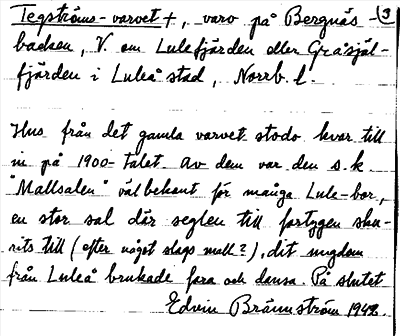 Tegströms-varvet +, varv på Bergnäs- (3
backen, V. om Lulefjärden eller Gråsjäl-
fjärden i Luleå stad, Norrb. l.
Hus från det gamla varvet stodo kvar till
in på 1900-talet. Av dem var den s.k.
"Mallsalen" välbekant för många Lule-bor,
en stor sal där seglen till fartygen sku-
rits till (efter något slags mall?), dit ungdom
från Luleå brukade fara och dansa. På slutet
Edvin Brännström 1942.